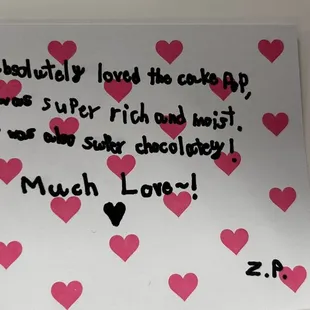 absolutely loved the cake pop,
was super rich and moist.
was also super chocolatey!
Much Love~!
Z.P.